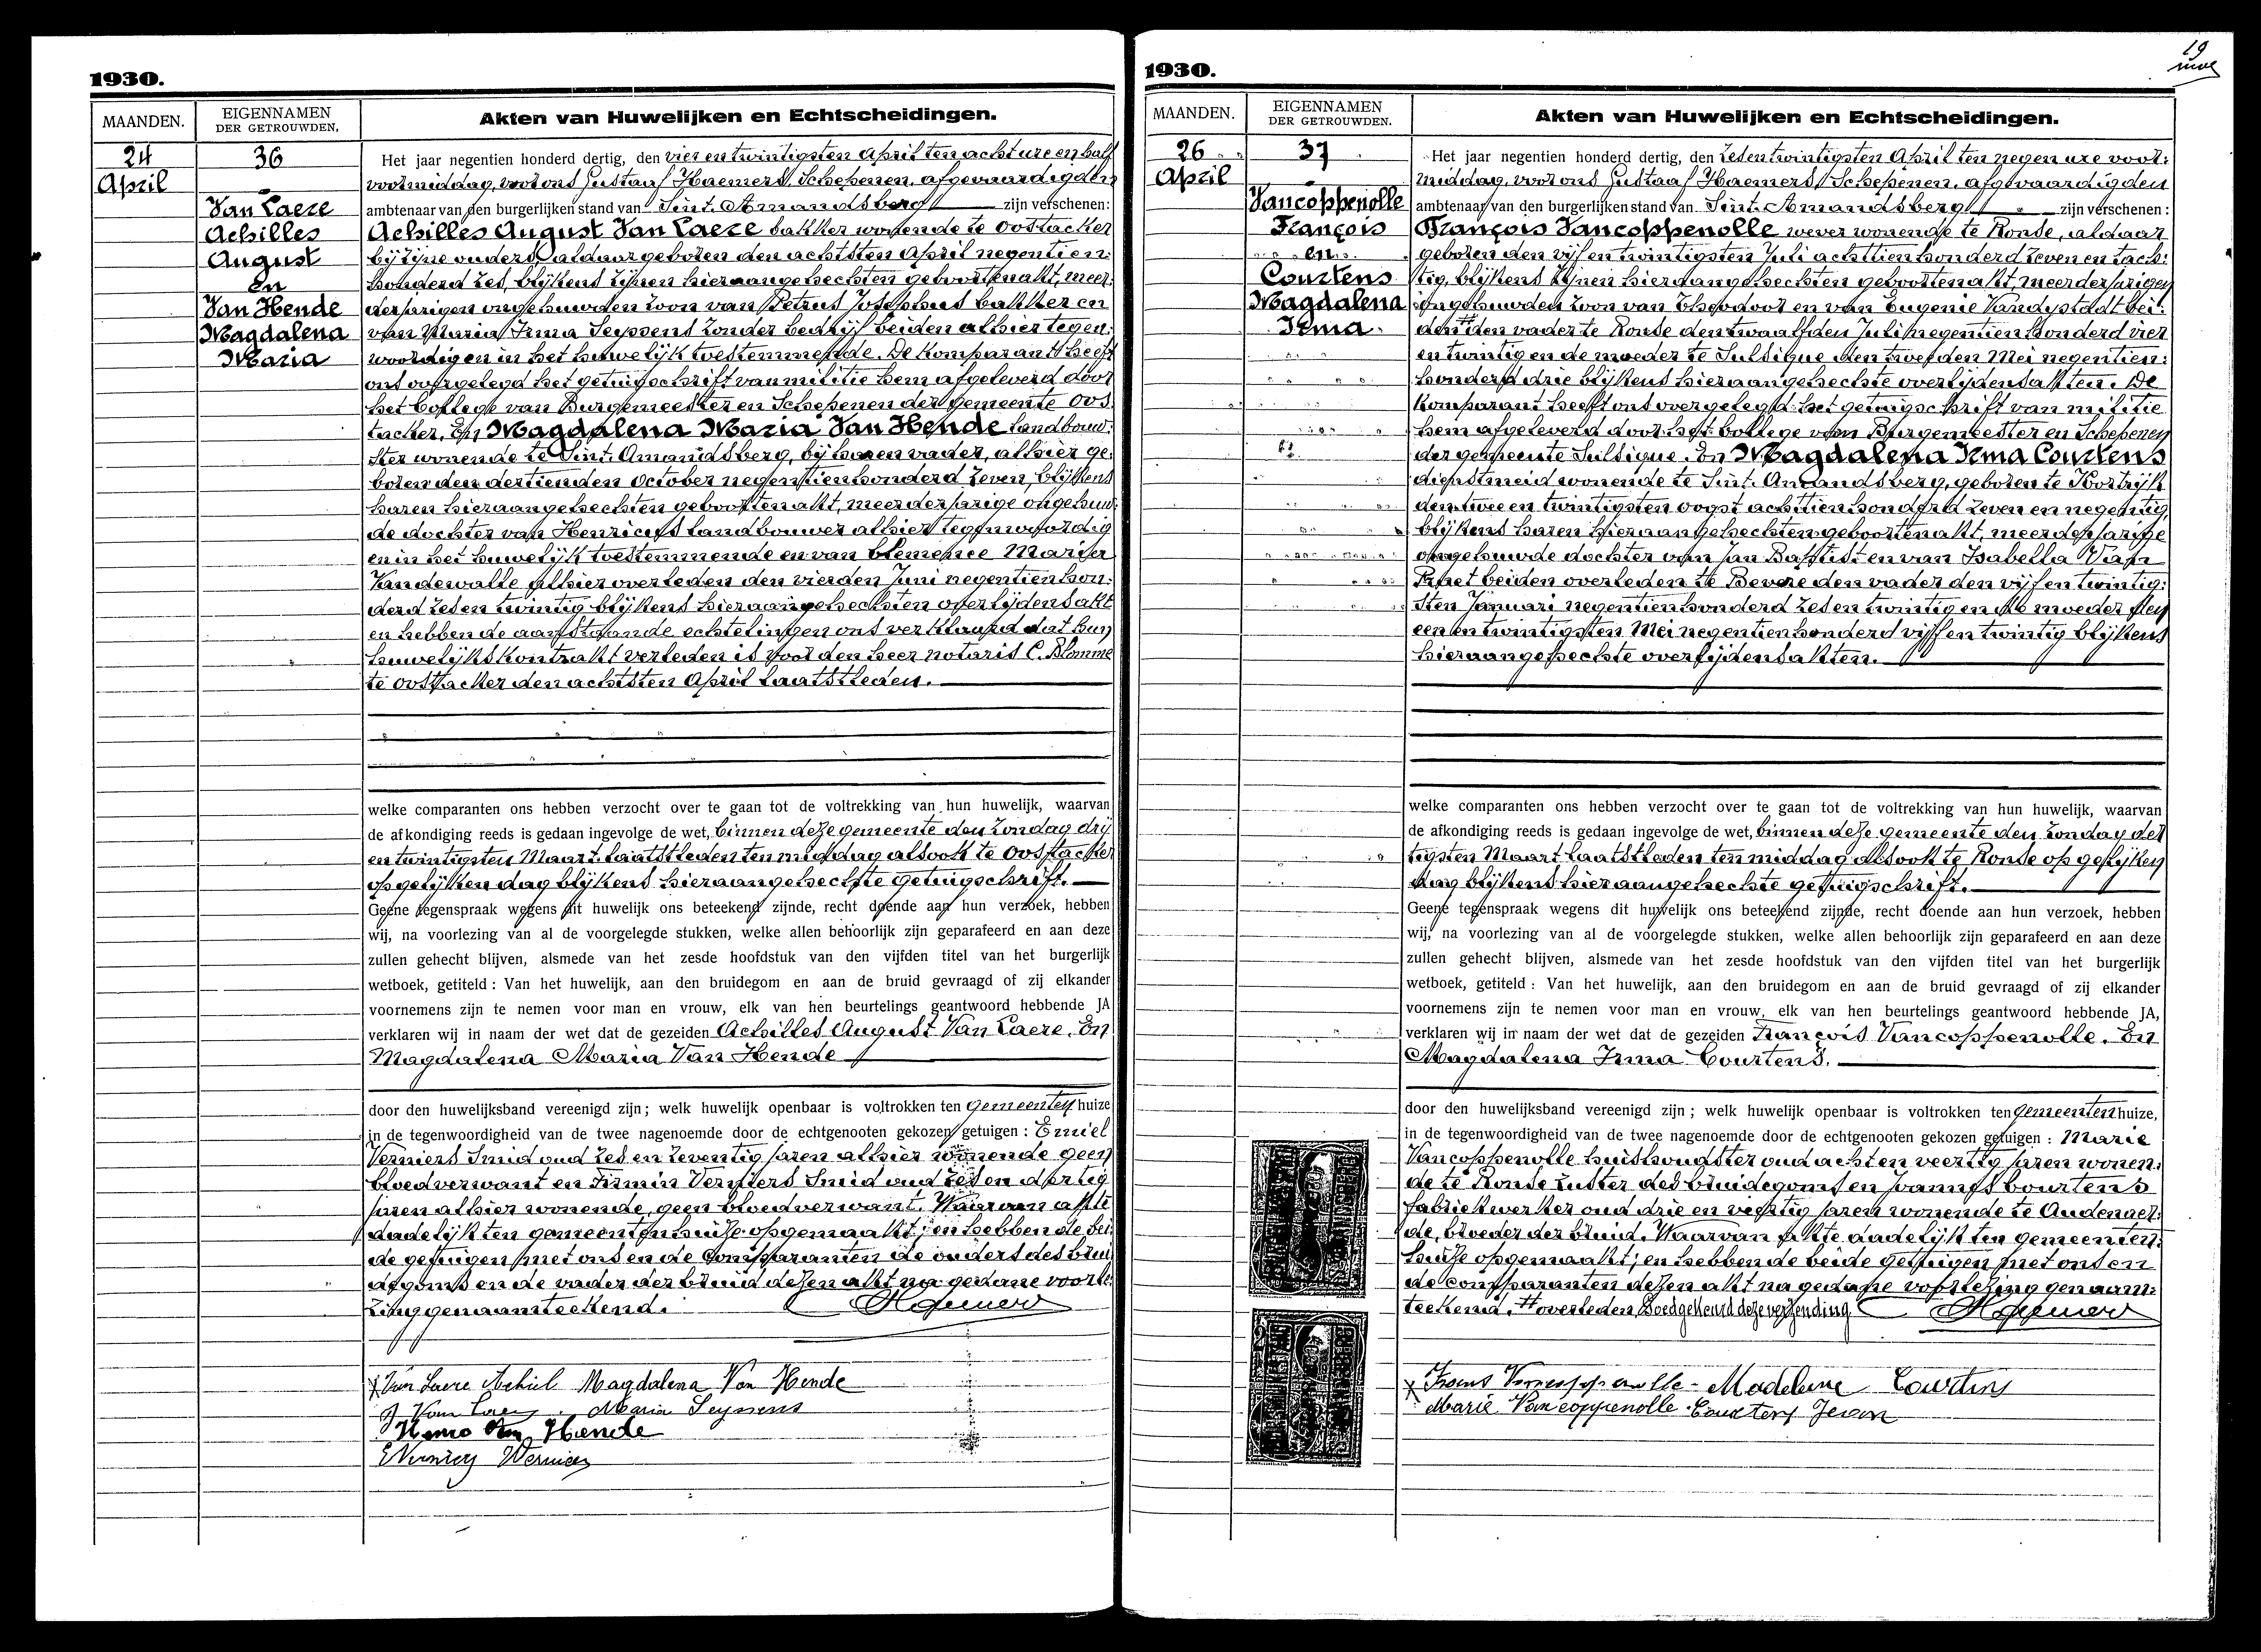 1930.
MAANDEN.
EIGENNAMEN
DER GETROUWDEN.
Akten van Huwelijken en Echtscheidingen.
24
April
36
Van Laere
Achilles
August
En
Van Hende
Magdalena
Maria
Het jaar negentien honderd dertig, den vier en twintigsten April ten acht ure en half
voormiddag, voor ons Gustaaf Haemers, Schepenen, afgevaardigden
ambtenaar van den burgerlijken stand van Sint. Amandsberg zijn verschenen:
Achilles August Van Laere bakker wonende te Oostacker
bij zijne ouders, aldaar geboren den achtsten April negentien:
honderd zes, blijkens zijnen hieraangehechten geboortenakt, meer:
derjarigen ongehuwden zoon van Petrus Josephus bakker en
van Maria Irma Seyssens zonder bedrijf beiden alhier tegen:
woordig en in het huwelijk toestemmende. De komparant heeft
ons overgelegd het getuigschrift van militie hem afgeleverd door
het College van Burgemeester en Schepenen der gemeente Oos
tacker. En Magdalena Maria Van Hende landbouw:
ster wonende te Sint. Amandsberg, bij haren vader, alhier ge:
boren den dertienden October negentienhonderd zeven, blijkens
haren hieraangehechten geboortenakt, meerderjarige ongehuw:
de dochter van Henricus landbouwer alhier tegenwoordig
en in het huwelijk toestemmende en van Clemence Marie
Vandewalle alhier overleden den vierden Juni negentien hon:
derd zes en twintig blijkens hieraangehechten overlijdensakt
en hebben de aanstaande echtelingen ons verklaard dat hun
huwelijkskontrakt verleden is voor den heer notaris C. Blomme
te Oostacker den achtsten April laatstleden.
welke comparanten ons hebben verzocht over te gaan tot de voltrekking van hun huwelijk, waarvan
de afkondiging reeds is gedaan ingevolge de wet, binnen deze gemeente den zondag drij
en twintigsten Maart laatstleden ten middag alsook te Oostacker
op gelijken dag blijkens hieraangehechte getuigschrift.
Geene tegenspraak wegens dit huwelijk ons beteekend zijnde, recht doende aan hun verzoek, hebben
wij, na voorlezing van al de voorgelegde stukken, welke allen behoorlijk zijn geparafeerd en aan deze
zullen gehecht blijven, alsmede van het zesde hoofdstuk van den vijfden titel van het burgerlijk
wetboek, getiteld : Van het huwelijk, aan den bruidegom en aan de bruid gevraagd of zij elkander
voornemens zijn te nemen voor man en vrouw, elk van hen beurtelings geantwoord hebbende JA
verklaren wij in naam der wet dat de gezeiden Achilles August Van Laere. En
Magdalena Maria Van Hende
door den huwelijksband vereenigd zijn ; welk huwelijk openbaar is voltrokken ten gemeenten huize
in de tegenwoordigheid van de twee nagenoemde door de echtgenooten gekozen getuigen : Emiel
Verniers Smid oud zes en zeventig jaren alhier wonende geen
bloedverwant en Firmin Verniers Smid oud zes en dertig
jaren alhier wonende, geen bloedverwant. Waarvan akte
dadelijk ten gemeentenhuize opgemaakt; en hebben de bei
de getuigen met ons en de Comparanten de ouders des brui
degoms en de vader der bruid dezen akt na gedane voorle:
zing genaamteekend.
Van Laere Achiel Magdalena Van Hende
Van Laere Maria Seyssens
Van Hende
Verniers
1930.
19
MAANDEN.
EIGENNAMEN
DER GETROUWDEN.
Akten van Huwelijken en Echtscheidingen.
26
April
37
Vancoppenolle
François
en
Courtens
Magdalena
Irma
Het jaar negentien honderd dertig, den zesentwintigsten April ten negen ure voor:
middag, voor ons Gustaaf Haemers, Schepenen, afgevaardigden
ambtenaar van den burgerlijken stand van Sint. Amandsberg zijn verschenen :
François Vancoppenolle wever wonende te Ronse, aldaar
geboren den vijf en twintigsten Juli achttienhonderd zeven en tach:
tig, blijkens zijnen hieraangehechten geboortenakt, meerderjarigen
ongehuwden zoon van Theodoor en van Eugenie Vandystadt bei:
den # den vader te Ronse den twaalfden Juli negentienhonderd vier
en twintig en de moeder te Sulsique den Mei negentien:
honderd drie blijkens hieraangehechte overlijdensakten. De
komparant heeft ons overgelegd het getuigschrift van militie
hem afgeleverd door het College van Burgemeester en Schepenen
der gemeente Sulsique. En Magdalena Irma Courtens
dienstmeid wonende te Sint. Amandsberg, geboren te Kortrijk
den twee en twintigsten oogst achttienhonderd zeven en negentig,
blijkens haren hieraangehechten geboortenakt, meerderjarige
ongehuwde dochter van Jan Baptist en van Isabella Van
beiden overleden te Bevere den vader den vijf en twintig:
sten Januari negentienhonderd zes en twintig en de moeder den
een en twintigsten Mei negentienhonderd vijf en twintig blijkens
hieraangehechte overlijdensakten.
welke comparanten ons hebben verzocht over te gaan tot de voltrekking van hun huwelijk, waarvan
de afkondiging reeds is gedaan ingevolge de wet, binnen deze gemeente den zondag der
tigsten Maart laatstleden ten middag alsook te Ronse op gelijken
dag blijkens hieraangehechte getuigschrift.
Geene tegenspraak wegens dit huwelijk ons beteekend zijnde, recht doende aan hun verzoek, hebben
wij, na voorlezing van al de voorgelegde stukken, welke allen behoorlijk zijn geparafeerd en aan deze
zullen gehecht blijven, alsmede van het zesde hoofdstuk van den vijfden titel van het burgerlijk
wetboek, getiteld : Van het huwelijk, aan den bruidegom en aan de bruid gevraagd of zij elkander
voornemens zijn te nemen voor man en vrouw, elk van hen beurtelings geantwoord hebbende JA,
verklaren wij in naam der wet dat de gezeiden François Vancoppenolle. En
Magdalena Irma Courtens.
door den huwelijksband vereenigd zijn ; welk huwelijk openbaar is voltrokken ten gemeenten huize,
in de tegenwoordigheid van de twee nagenoemde door de echtgenooten gekozen getuigen : Marie
Vancoppenolle huishoudster oud acht en veertig jaren wonen:
de te Ronse zuster des bruidegoms en Courtens
fabriekwerker oud drie en jaren wonende te Audenaer:
de, broeder der bruid. Waarvan akte dadelijk ten gemeenten:
huize opgemaakt; en hebben de beide getuigen met ons en
de comparanten dezen akt na gedane voorlezing genaam:
teekend. # overleden Goedgekeurd deze verzending
Frans Vancoppenolle - Madeleine Courtens
Marie Vancoppenolle Courtens Jean